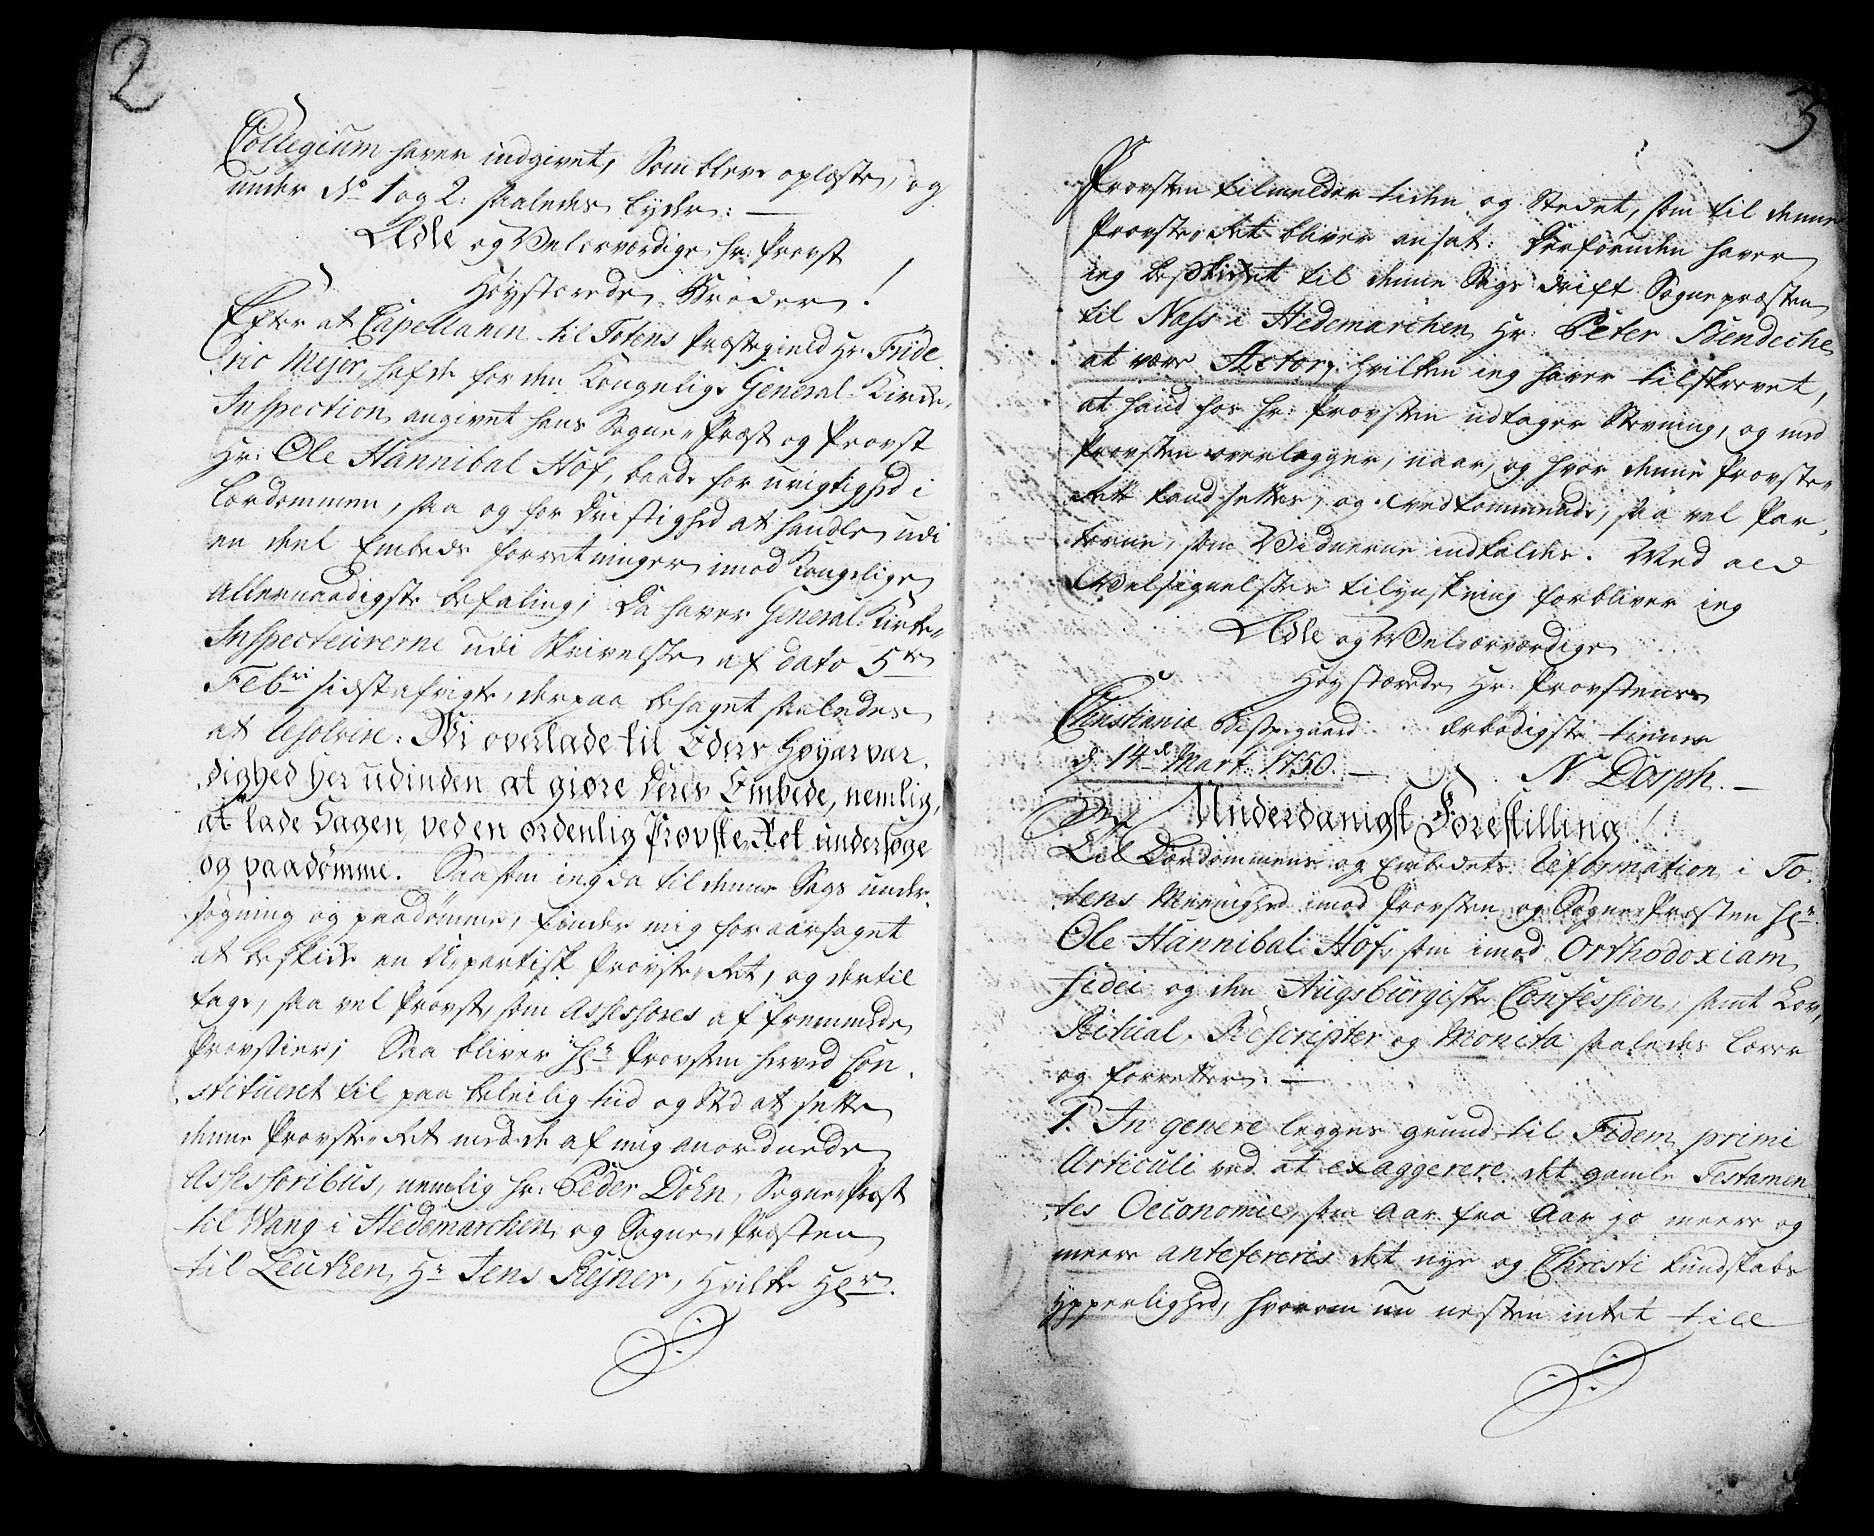 2
Collegium haver indgivet, Som bleve oplæste, og
under No 1 og 2: saaledes lyder: —
Ædle og Velærværdige hr: Provst
Høystærede Broder!
Efter at Capellanen til Totens Præstegield Hr: Fride
ric Mejer, hafde for den Kongelige General-Kirke-
Inspection angivet hans Sogne-Præst og Provst
Hr: Ole Hannibal Hof, baade for urigtighed i
Lærdommen, saa og for Dristighed at handle udi
en deel Embeds forretninger imod Kongelige
Allernaadigste befaling; Da haver General-Kirke-
Inspecteurerne udi Skrivelse af dato 5te
Febr: sidstafvigte, derpaa behaget saaledes
at resolvire: Wi overlade til Eders Høyærvær-
dighed her udinden at giøre Deres Embede, nemlig,
at lade Sagen ved en ordenlig Provste-Ret undersøge
og paadømme. Saasom ieg da til denne Sags under-
søgning og paadømme, finder mig foraarsaget
at beskikke en U-partisk Provste-Ret, og dertil
tage, saa vel Provst, som Assessores af fremmede
Provstier; Saa bliver Hr Provsten herved Con-
stitueret til paa beleilig tiid og Sted at sette
denne Provste-Ret med de af mig anordnede
Assessoribus, nemlig hr: Peder Dohn, Sogne-Præst
til Wang i Hedemarchen og Sogne-Præsten
til Leuthen Hr Jens Rejner, Hvilke Hr
3
Provsten tilmelder tiden og Stedet, som til denne
Provste-Ret bliver ansat: Desforuden haver
ieg beskikket til denne Sags drift Sognepræsten
til Ness i Hedemarchen Hr: Peter Bendeche
at være Actor, hvilken ieg haver tilskrevet,
at hand hos hr: Provsten udtager Stevning, og med
Provsten overlegger, naar, og hvor denne Provste-
Ret kand settes, og vedkommende, saa vel Par-
terne, som Vidnerne indkaldes. Med ald
Velsignelses tilynskning forbliver ieg
Ædle og Velærværdige
Høystærede Hr: Provstens
Christiania Bispegaard ærbødigste tiener
d 14de Mart: 1750. — N Dorph. —
Underdanigst Forestilling
Til Lærdommens og Embedets Reformation i To-
tens Meenighed imod Provsten og Sogne-Præsten Hr
Ole Hannibal Hof, som imod Orthodoxiam
fidei og den Augsburgiske Confession, samt Lov,
Ritual, Rescripter og Monita saaledes lærer
og forretter: —
1. In genere legges grund til Fidem primi
Articuli ved at exaggerere det gamle Testamen-
tes Oeconomie, som Aar fra Aar jo meere og
meere antefereris det nye og Christi Kundskabs
ypperlighed, hvorom nu nesten intet till